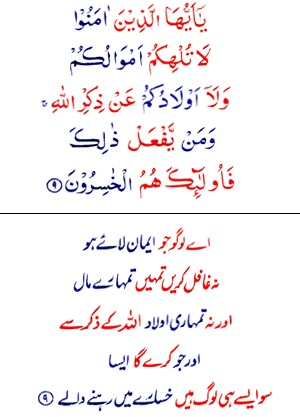 يٰٓاَيُّهَا الَّذِيْنَ اٰمَنُوْا
لَا تُلْهِكُمْ اَمْوَالُكُمْ
وَلَآ اَوْلَادُكُمْ عَنْ ذِكْرِ اللّٰهِ ۚ
وَمَنْ يَّفْعَلْ ذٰلِكَ
فَاُولٰٓئِكَ هُمُ الْخٰسِرُوْنَ ۹
اے لوگو جو ایمان لائے ہو
نہ غافل کریں تمہیں تمہارے مال
اور نہ تمہاری اولاد اللہ کے ذکر سے
اور جو کرے گا ایسا
سو ایسے ہی لوگ ہیں خسارے میں رہنے والے ۹